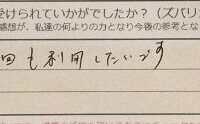 受けられていかがでしたか？（ズバリ
感想が、私達の何よりの力となり今後の参考とな
回も利用したいです